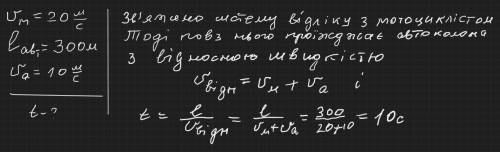 υₘ = 20 м/с
l авт = 300м
υₐ = 10 м/с
t - ?
Зв'яжемо систему відліку з мотоциклістом
Тоді повз нього проїжджає автоколона
з відносною швидкістю
υвідн = υм + υа і
t = l/υвідн = l/(υм+υа) = 300/(20+10) = 10с